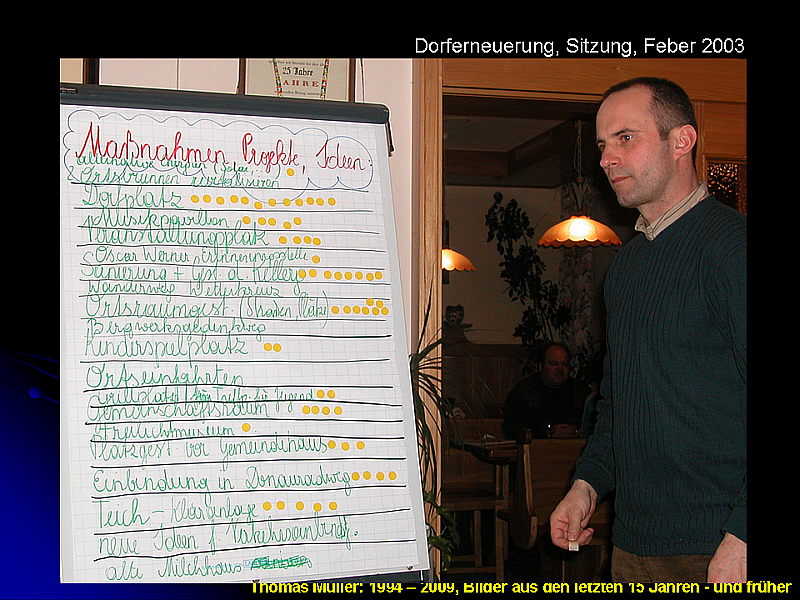 Dorferneuerung, Sitzung, Feber 2003
25 Jahre
JAHRE
Maßnahmen, Projekte, Ideen:
& Ortsbrunnen revitalisieren
Dorfplatz
Musikpavillon
Veranstaltungsplatz
Oscar Werner Erinnerungsstelle
Sanierung + Gst. d. Keller
Wanderweg Wetterkreuz
Ortsraumgest. (Straßen, Plätze)
Bergwerksgedenkweg
Kinderspielplatz
Ortseinfahrten
Grillplatz für Treffs für Jugend
Gemeinschaftsraum
Freilichtmuseum
Platzgest. vor Gemeindehaus
Einbindung in Donauradweg
Teich - Kläranlage
neue Ideen f. Verkehrsanbindg.
alte Milchhaus
Thomas Müller: 1994 – 2009, Bilder aus den letzten 15 Jahren - und früher